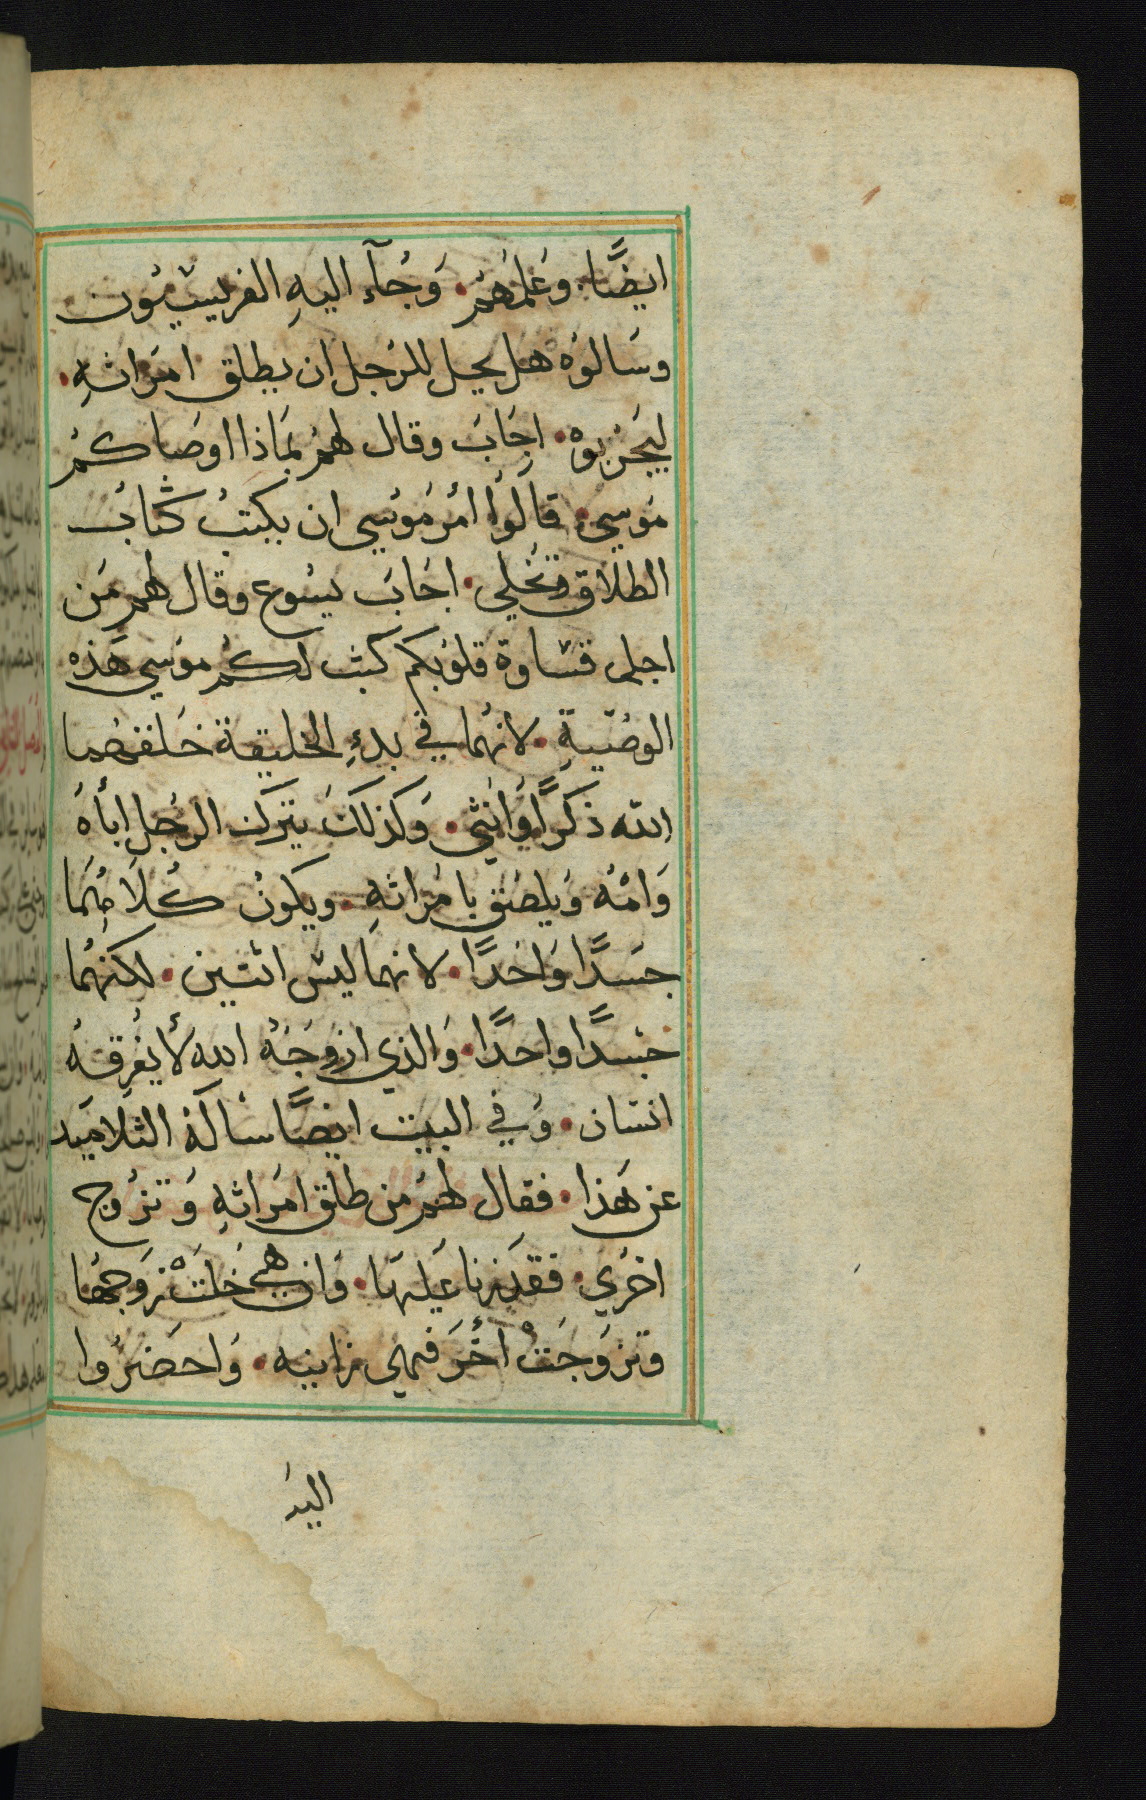 ايضًا. وعَلمَهُمْ. وَجُآء اليهِ الفريسيُون
وسَالوُه هل يحل للرَجل ان يطلق امَراتهِ.
ليَجرَبوه. اجَابَ وقال لهُمْ بمَاذا اوصَاكمْ
مَوسي. قالوُا امُر مُوسي ان يكتبُ كتابُ
الطلاق وتخُلي. اجَابَ يسُوع وقال لهم مَن
اجلى قساوة قلوُبكم كتب لكُم موَسي هَذه
الوصَيةِ. لانهُما في بدءِ الخليقة خَلقهُما
الله ذكرًا وَانثي. وَكذلكَ يترك الرجُل اباهُ
وَامُه وَيلصَق بامُراتهِ. ويكونُ كُلاهِمَا
جسَدًا وَاحَدًا. لانهمَا ليسَ اثنين. لكنهُمَا
جسدًا واحدًا. وَالذي ازوجَهُ الله لأ يفُرِقهُ
انسان. وَفي البيت ايضًا سَالهُ التلاميَد
عن هَذا. فقال لهُمْ من طلق امَراتهِ وَتزُوج
اخَرُي. فقدَ زنا عَليهَا. وَان هي خَلتْ زوَجهُا
وتزوَجَتْ أخَر فهي زانيه. وَاحضَرُوا
اليهَ